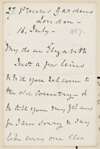 27, Princes Gardens
London —
16. July — 1887.
My dear Elizabeth
Just a few lines
to bid you welcome to
the old country — &
to tell you my plans
for I am sorry to say
like every one else